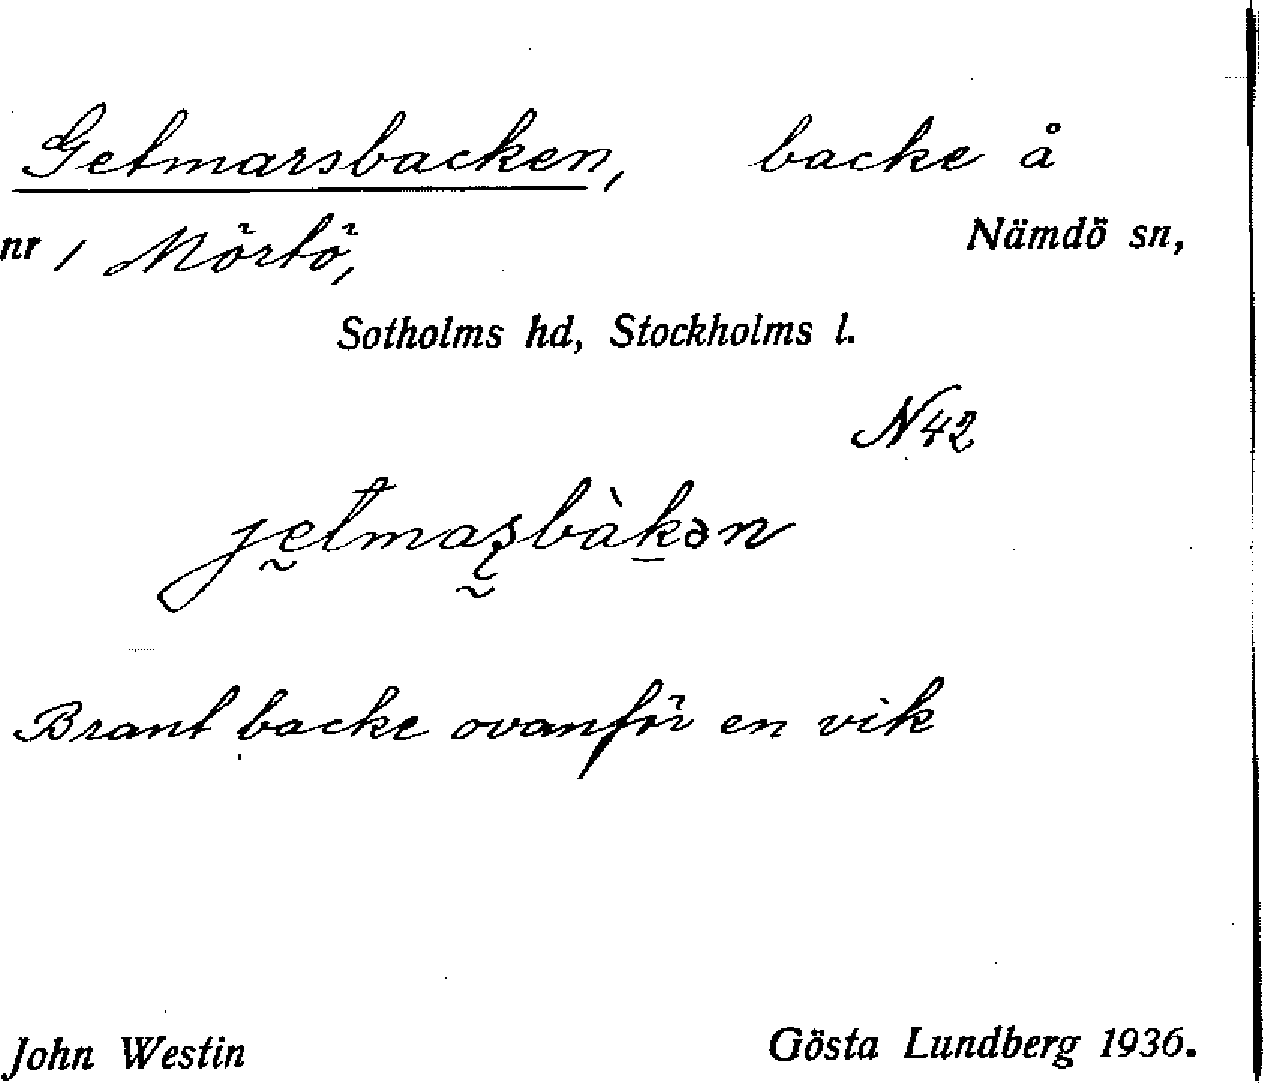 Getmarsbacken, backe å
nr 1 Mörtö, Nämdö sn,
Sotholms hd, Stockholms l.
N42
Brant backe ovanför en vik
John Westin Gösta Lundberg 1936.